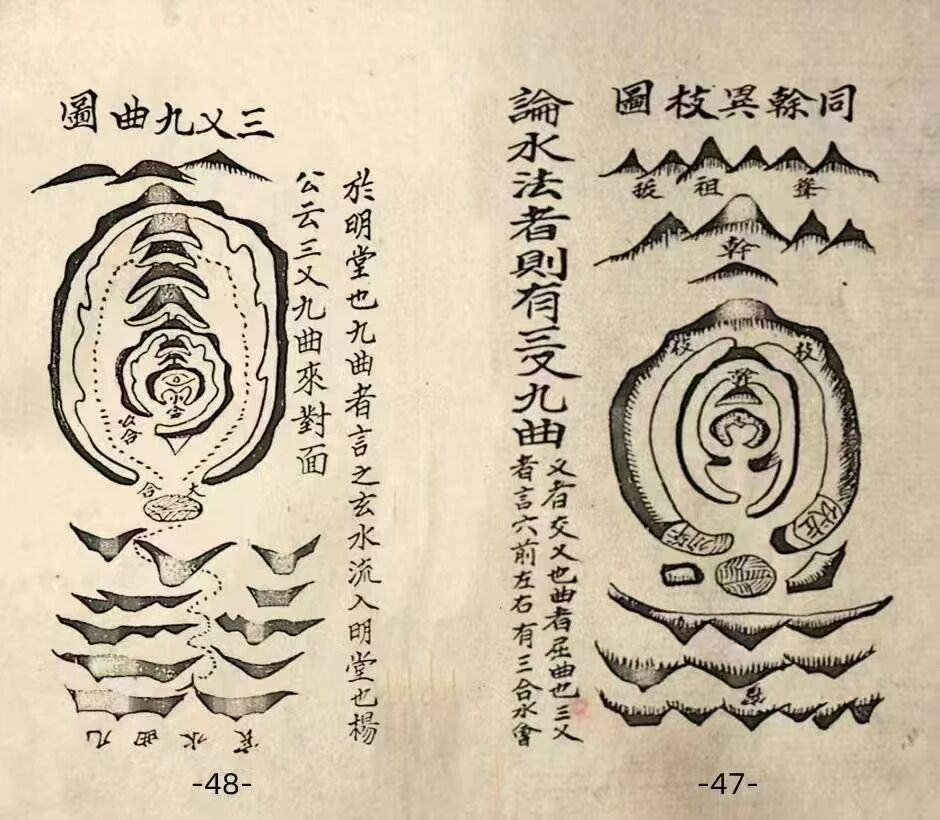 同榦異枝圖
祖
幹
枝
枝
論水法者則有三乂九曲
乂者交乂也曲者屈曲也三乂
者言穴前左右有三合水會
-47-
於明堂也九曲者言之玄水流入明堂也楊
公云三乂九曲來對面
三乂九曲圖
小合
大合
水曲九
-48-